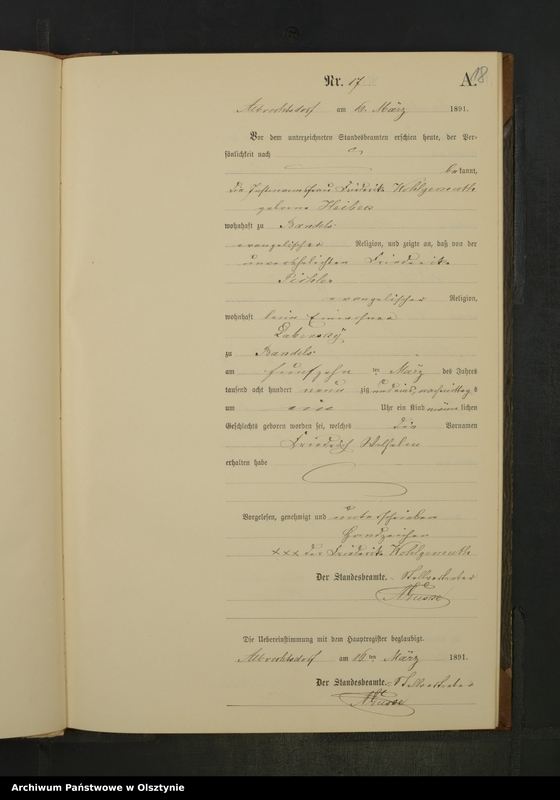 Nr. 17
A.
18
Albrechtsdorf am 16. März 1891.
Vor dem unterzeichneten Standesbeamten erschien heute, der Per-
sönlichkeit nach
bekannt,
die Instmannsfrau Friederike Wohlgemuth
geborne
wohnhaft zu Bandels
evangelischer Religion, und zeigte an, daß von der
unverehelichten Friederike
evangelischer Religion,
wohnhaft beim Einwohner
zu Bandels
am fünfzehn ten März des Jahres
tausend acht hundert neun zig und eins, nachmittags
um Uhr ein Kind männlichen
Geschlechts geboren worden sei, welches die Vornamen
Friedrich Wilhelm
erhalten habe
Vorgelesen, genehmigt und unterschrieben
Handzeichen
××× der Friederike Wohlgemuth
Der Standesbeamte. Stellvertreter
Die Uebereinstimmung mit dem Hauptregister beglaubigt.
Albrechtsdorf am 16 ten März 1891.
Der Standesbeamte. Stellvertreter
Archiwum Państwowe w Olsztynie